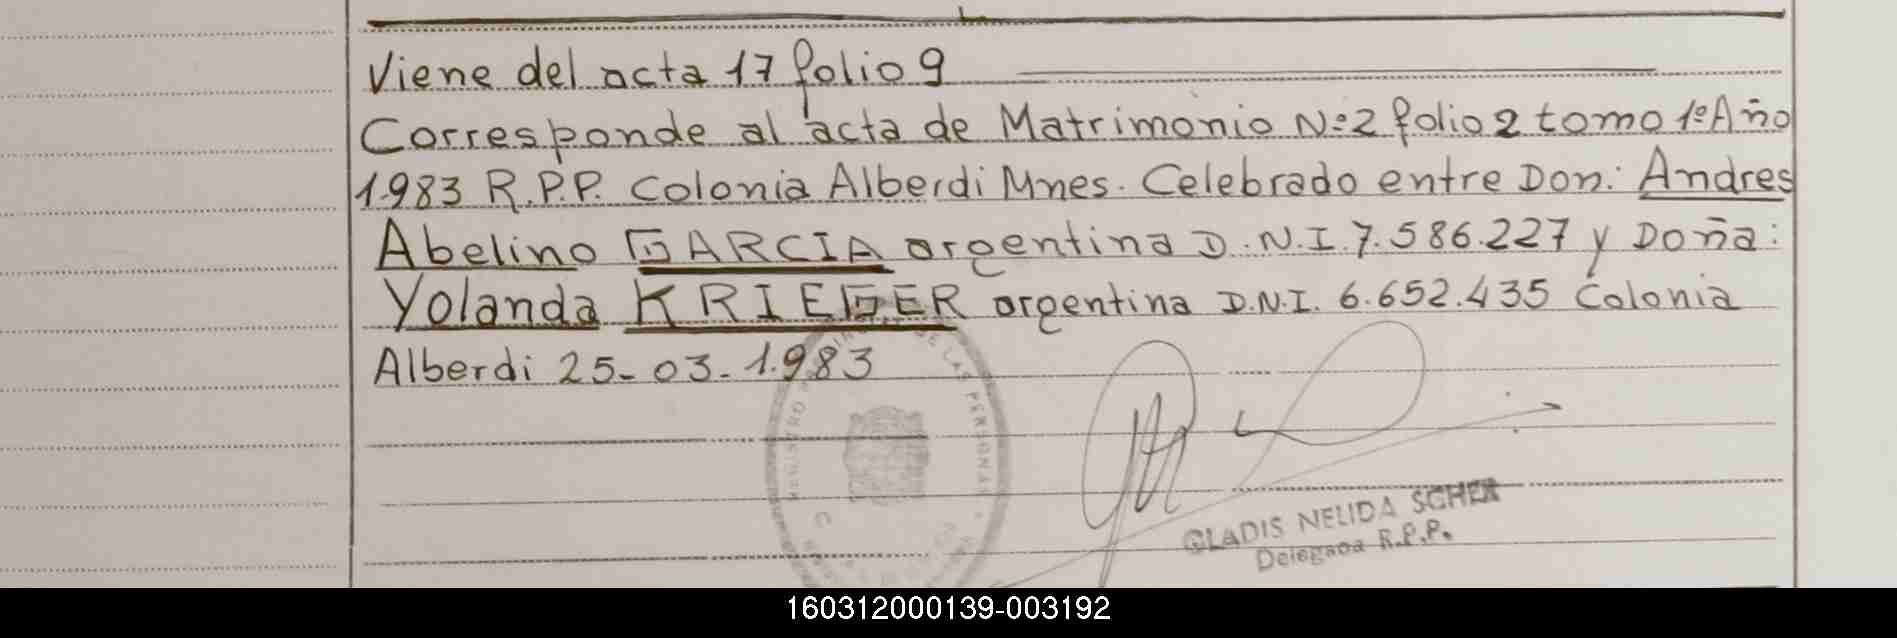 Viene del acta 17 folio 9
Corresponde al acta de Matrimonio Nº2 folio 2 tomo 1º Año
1.983 R.P.P. Colonia Alberdi Mnes. Celebrado entre Don: Andres
Abelino GARCIA argentina D.N.I. 7.586.227 y Doña:
Yolanda KRIEGER argentina D.N.I. 6.652.435 Colonia
Alberdi 25-03-1.983
DE LAS PERSONAS
GLADIS NELIDA SCHER
Delegada R.P.P.
160312000139-003192